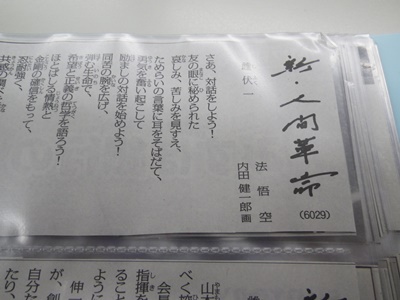 新・人間革命
法悟空
内田健一郎 画
(6029)
雌伏 一
さあ、対話をしよう！
友の眼に秘められた
哀しみ、苦しみを見すえ、
ためらいの言葉に耳をそばだて、
勇気を奮い起こして
励ましの対話を始めよう！
同苦の腕を広げ、
弾む生命で、
希望と正義の哲学を語ろう！
ほとばしる情熱と
金剛の確信をもって、
忍耐強く、
山本
べく
会長
指揮を
ること
伸一
が、創
自分た
たり、